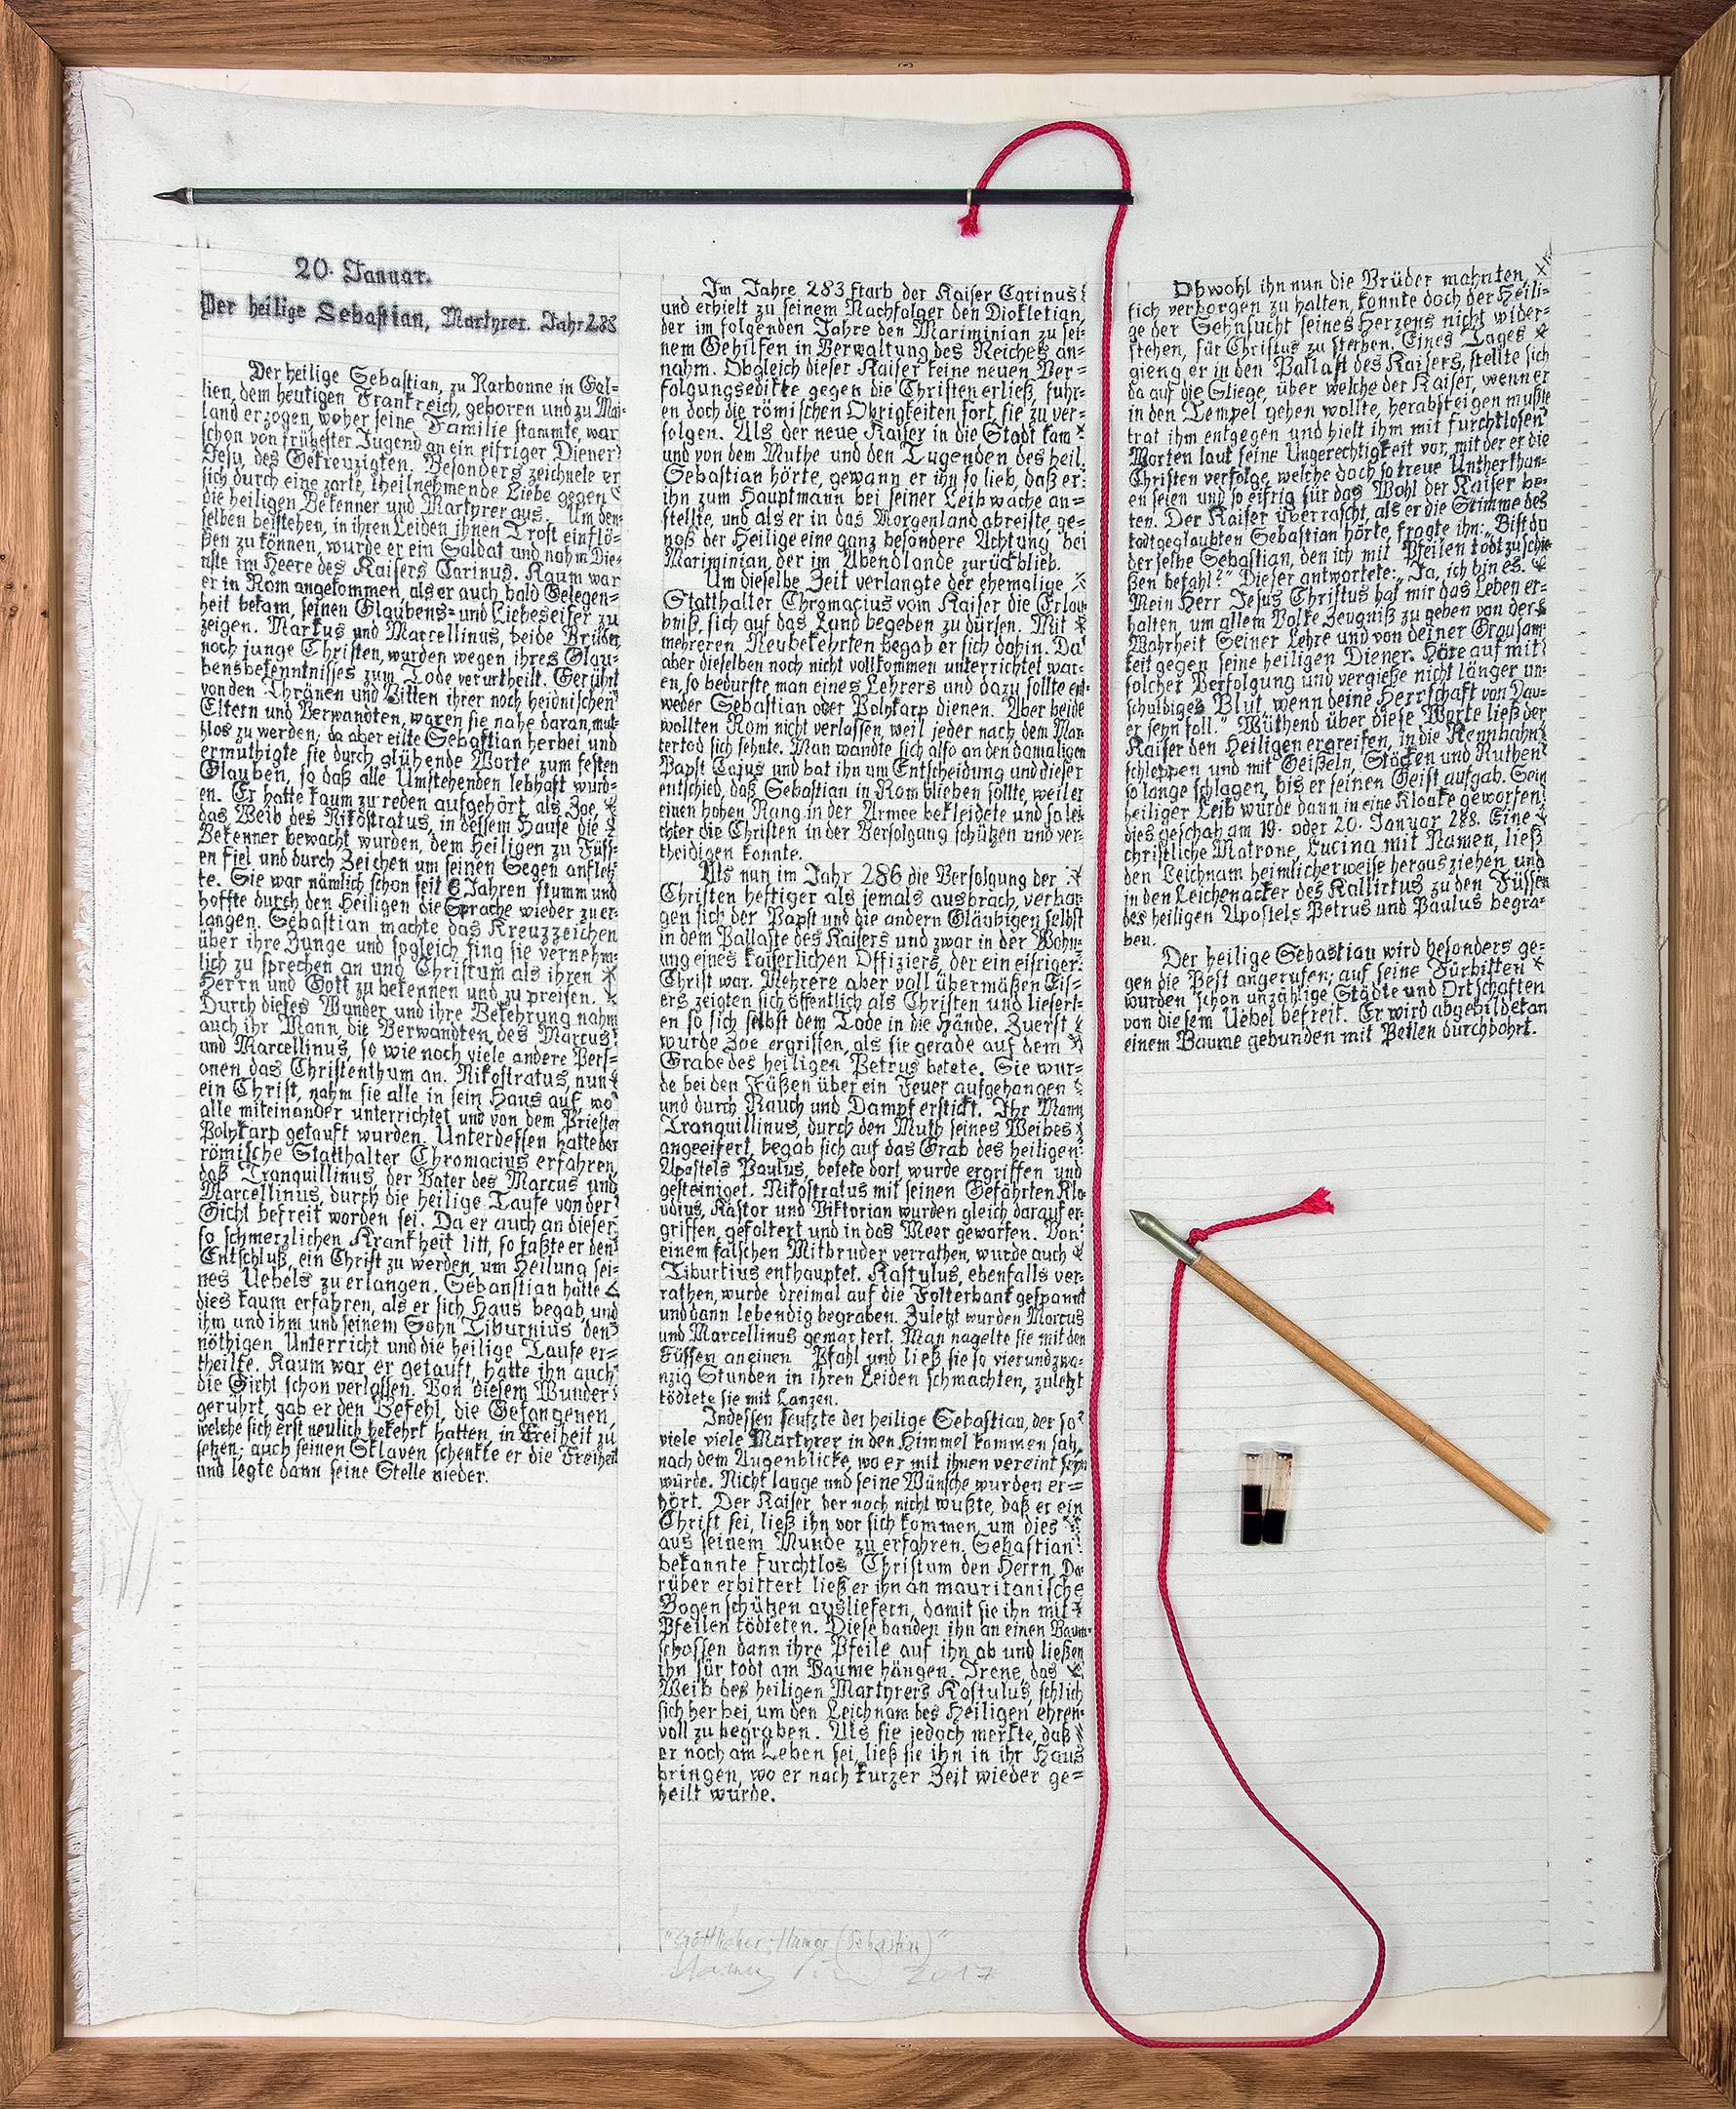 20. Januar.
Der heilige Sebastian, Martyrer. Jahr 288
Der heilige Sebastian, zu Narbonne in Gal=
lien, dem heutigen Frankreich, geboren und zu Mai-
land erzogen, woher seine Familie stammte, war
schon von frühester Jugend an ein eifriger Diener
Jesu, des Gekreuzigten. Besonders zeichnete er
sich durch eine zarte, theilnehmende Liebe gegen
die heiligen Bekenner und Martyrer aus. Um den=
selben beistehen, in ihren Leiden ihnen Trost einflö-
ßen zu können, wurde er ein Soldat und nahm Die-
nste im Heere des Kaisers Carinus. Kaum war
er in Rom angekommen, als er auch bald Gelegen=
heit bekam, seinen Glaubens= und Liebeseifer zu
zeigen. Markus und Marcellinus, beide Brüder,
noch junge Christen, wurden wegen ihres Glau-
bensbekenntnisses zum Tode verurtheilt. Gerührt
von den Thränen und Bitten ihrer noch heidnischen
Eltern und Verwandten, waren sie nahe daran, mut-
hlos zu werden, da aber eilte Sebastian herbei und
ermuthigte sie durch glühende Worte zum festen
Glauben, so daß alle Umstehenden lebhaft wurd-
en. Er hatte kaum zu reden aufgehört, als Zoe,
das Weib des Nikostratus, in dessem Hause die
Bekenner bewacht wurden, dem Heiligen zu Füss-
en fiel und durch Zeichen um seinen Segen anfleh-
te. Sie war nämlich schon seit 6 Jahren stumm und
hoffte durch den Heiligen die Sprache wieder zu er-
langen. Sebastian machte das Kreuzzeichen
über ihre Zunge und sogleich fing sie vernehm-
lich zu sprechen an und Christum als ihren
Herrn und Gott zu bekennen und zu preisen.
Durch dieses Wunder und ihre Bekehrung nahm
auch ihr Mann, die Verwandten, des Marcus
und Marcellinus, so wie noch viele andere Pers=
onen das Christenthum an. Nikostratus, nun
ein Christ, nahm sie alle in sein Haus auf, wo
alle miteinander unterrichtet und von dem Priester
Polykarp getauft wurden. Unterdessen hatte der
römische Statthalter Chromacius erfahren,
daß Tranquillinus, der Vater des Marcus und
Marcellinus, durch die heilige Taufe von der
Gicht befreit worden sei. Da er auch an dieser
so schmerzlichen Krankheit litt, so faßte er den
Entschluß, ein Christ zu werden, um Heilung sei-
nes Uebels zu erlangen. Sebanstian hatte
dies kaum erfahren, als er sich Haus begab, und
ihm und ihm und seinem Sohn Tiburnius den
nöthigen Unterricht und die heilige Taufe er=
theilte. Kaum war er getauft, hatte ihn auch
die Gicht schon verlassen. Von diesem Wunder
gerührt, gab er den Befehl, die Gefangenen,
welche sich erst neulich bekehrt hatten, in Freiheit zu
setzen; auch seinen Sklaven schenkte er die Freiheit
und legte dann seine Stelle nieder.
Im Jahre 283 starb der Kaiser Carinus
und erhielt zu seinem Nachfolger den Diokletian,
der im folgenden Jahre den Mariminian zu sei-
nem Gehilfen in Verwaltung des Reiches an-
nahm. Obgleich dieser Kaiser keine neuen Ver=
folgungsedikte gegen die Christen erließ, fuhr-
en doch die römischen Obrigkeiten fort, sie zu ver-
folgen. Als der neue Kaiser in die Stadt kam
und von dem Muthe und den Tugenden des heil.
Sebastian hörte, gewann er ihn so lieb, daß er
ihn zum Hauptmann bei seiner Leibwache an=
stellte, und als er in das Morgenland abreiste ge-
noß der Heilige eine ganz besondere Achtung bei
Mariminian, der im Abendlande zurückblieb.
Um dieselbe Zeit verlangte der ehemalige
Statthalter Chromacius vom Kaiser die Erlau-
bniß, sich auf das Land begeben zu dürfen. Mit
mehreren Neubekehrten begab er sich dahin. Da
aber dieselben noch nicht vollkommen unterrichtet war-
en, so bedurfte man eines Lehrers und dazu sollte ent-
weder Sebastian oder Polykarp dienen. Aber beide
wollten Rom nicht verlassen, weil jeder nach dem Mar
tertod sich sehnte. Man wandte sich also an den damaligen
Papst Cajus und bat ihn um Entscheidung und dieser
entschied, daß Sebastian in Rom blieben sollte, weil er
einen hohen Rang in der Armee bekleidete und so lei-
chter die Christen in der Verfolgung schützen und ver-
theidigen konnte.
Als nun im Jahr 286 die Verfolgung der
Christen heftiger als jemals ausbrach, verbar-
gen sich der Papst und die andern Gläubigen selbst
in dem Pallaste des Kaisers und zwar in der Wohn-
ung eines kaiserlichen Offiziers, der ein eifriger
Christ war. Mehrere aber voll übermäßen Eif-
ers zeigten sich öffentlich als Christen und liefert-
en so sich selbst dem Tode in die Hände. Zuerst
wurde Zoe ergriffen, als sie gerade auf dem
Grabe des heiligen Petrus betete. Sie wur-
de bei den Füßen über ein Feuer aufgehangen
und durch Rauch und Dampf erstickt. Ihr Mann
Tranquillinus, durch den Muth seines Weibes
angeeifert, begab sich auf das Grab des heiligen
Apostels Paulus, betete dort, wurde ergriffen und
gesteiniget. Nikostratus mit seinen Gefährten Kla-
udius, Kastor und Viktorian wurden gleich darauf er-
griffen, gefoltert und in das Meer geworfen. Von
einem falschen Mitbruder verrathen, wurde auch
Tiburtius enthauptet. Kastulus, ebenfalls ver-
rathen, wurde dreimal auf die Folterbank gespannt
und dann lebendig begraben. Zuletzt wurden Marcus
und Marcellinus gemartert. Man nagelte sie mit den
Füssen an einen Pfahl und ließ sie so vierundzwa-
nzig Stunden in ihren Leiden schmachten, zuletzt
tödtete sie mit Lanzen.
Indessen seufzte der heilige Sebastian, der so
viele viele Martyrer in den Himmel kommen sah,
nach dem Augenblicke, wo er mit ihnen vereint seyn
würde. Nicht lange und seine Wünsche wurden er=
hört. Der Kaiser, der noch nicht wußte, daß er ein
Christ sei, ließ ihn vor sich kommen, um dies
aus seinem Munde zu erfahren. Sebastian
bekannte furchtlos Christum den Herrn. Da
rüber erbittert ließ er ihn an mauritanische
Bogenschützen ausliefern, damit sie ihn mit
Pfeilen tödteten. Diese banden ihn an einen Baum,
schossen dann ihre Pfeile auf ihn ab und ließen
ihn für todt am Baume hängen. Irene, das
Weib des heiligen Martyrers Kastulus, schlich
sich herbei, um den Leichnam des Heiligen ehren-
voll zu begraben. Als sie jedoch merkte, daß
er noch am Leben sei, ließ sie ihn in ihr Haus
bringen, wo er nach kurzer Zeit wieder ge=
heilt wurde.
Obwohl ihn nun die Brüder mahnten,
sich verborgen zu halten, konnte doch der Heili=
ge der Sehnsucht seines Herzens nicht wider-
stehen, für Christus zu sterben. Eines Tages
gieng er in den Pallast des Kaisers, stellte sich
da auf die Stiege, über welche der Kaiser, wenn er
in den Tempel gehen wollte, herabsteigen mußte
trat ihm entgegen und hielt ihm mit furchtlosen
Worten laut seine Ungerechtigkeit vor, mit der er die
Christen verfolge, welche doch so treue Unterthan-
en seien und so eifrig für das Wohl der Kaiser be-
ten. Der Kaiser überrascht, als er die Stimme des
todtgeglaubten Sebastian hörte, fragte ihn: „Bist du
derselbe Sebastian, den ich mit Pfeilen todt zu schie-
ßen befahl?" Dieser antwortete: „Ja, ich bin es.
Mein Herr Jesus Christus hat mir das Leben er-
halten, um allem Volke Zeugniß zu geben von der
Wahrheit Seiner Lehre und von deiner Grausam-
keit gegen seine heiligen Diener. Höre auf mit
solcher Verfolgung und vergieße nicht länger un-
schuldiges Blut, wenn deine Herrschaft von Dau-
er seyn soll." Wüthend über diese Worte ließ der
Kaiser den Heiligen ergreifen, in die Rennbahn
schleppen und mit Geißeln, Stöcken und Ruthen
so lange schlagen, bis er seinen Geist aufgab. Sein
heiliger Leib wurde dann in eine Kloake geworfen;
dies geschah am 19. oder 20. Januar 288. Eine
christliche Matrone, Lucina mit Namen, ließ
den Leichnam heimlicherweise herausziehen und
in den Leichenacker des Kallirtus zu den Füssen
des heiligen Apostels Petrus und Paulus begra-
ben.
Der heilige Sebastian wird besonders ge-
gen die Pest angerufen; auf seine Fürbitten
wurden schon unzählige Städte und Ortschaften
von diesem Uebel befreit. Er wird abgebildet an
einem Baume gebunden mit Peilen durchbohrt.
"Göttlicher Humor (Sebastian)"
2017